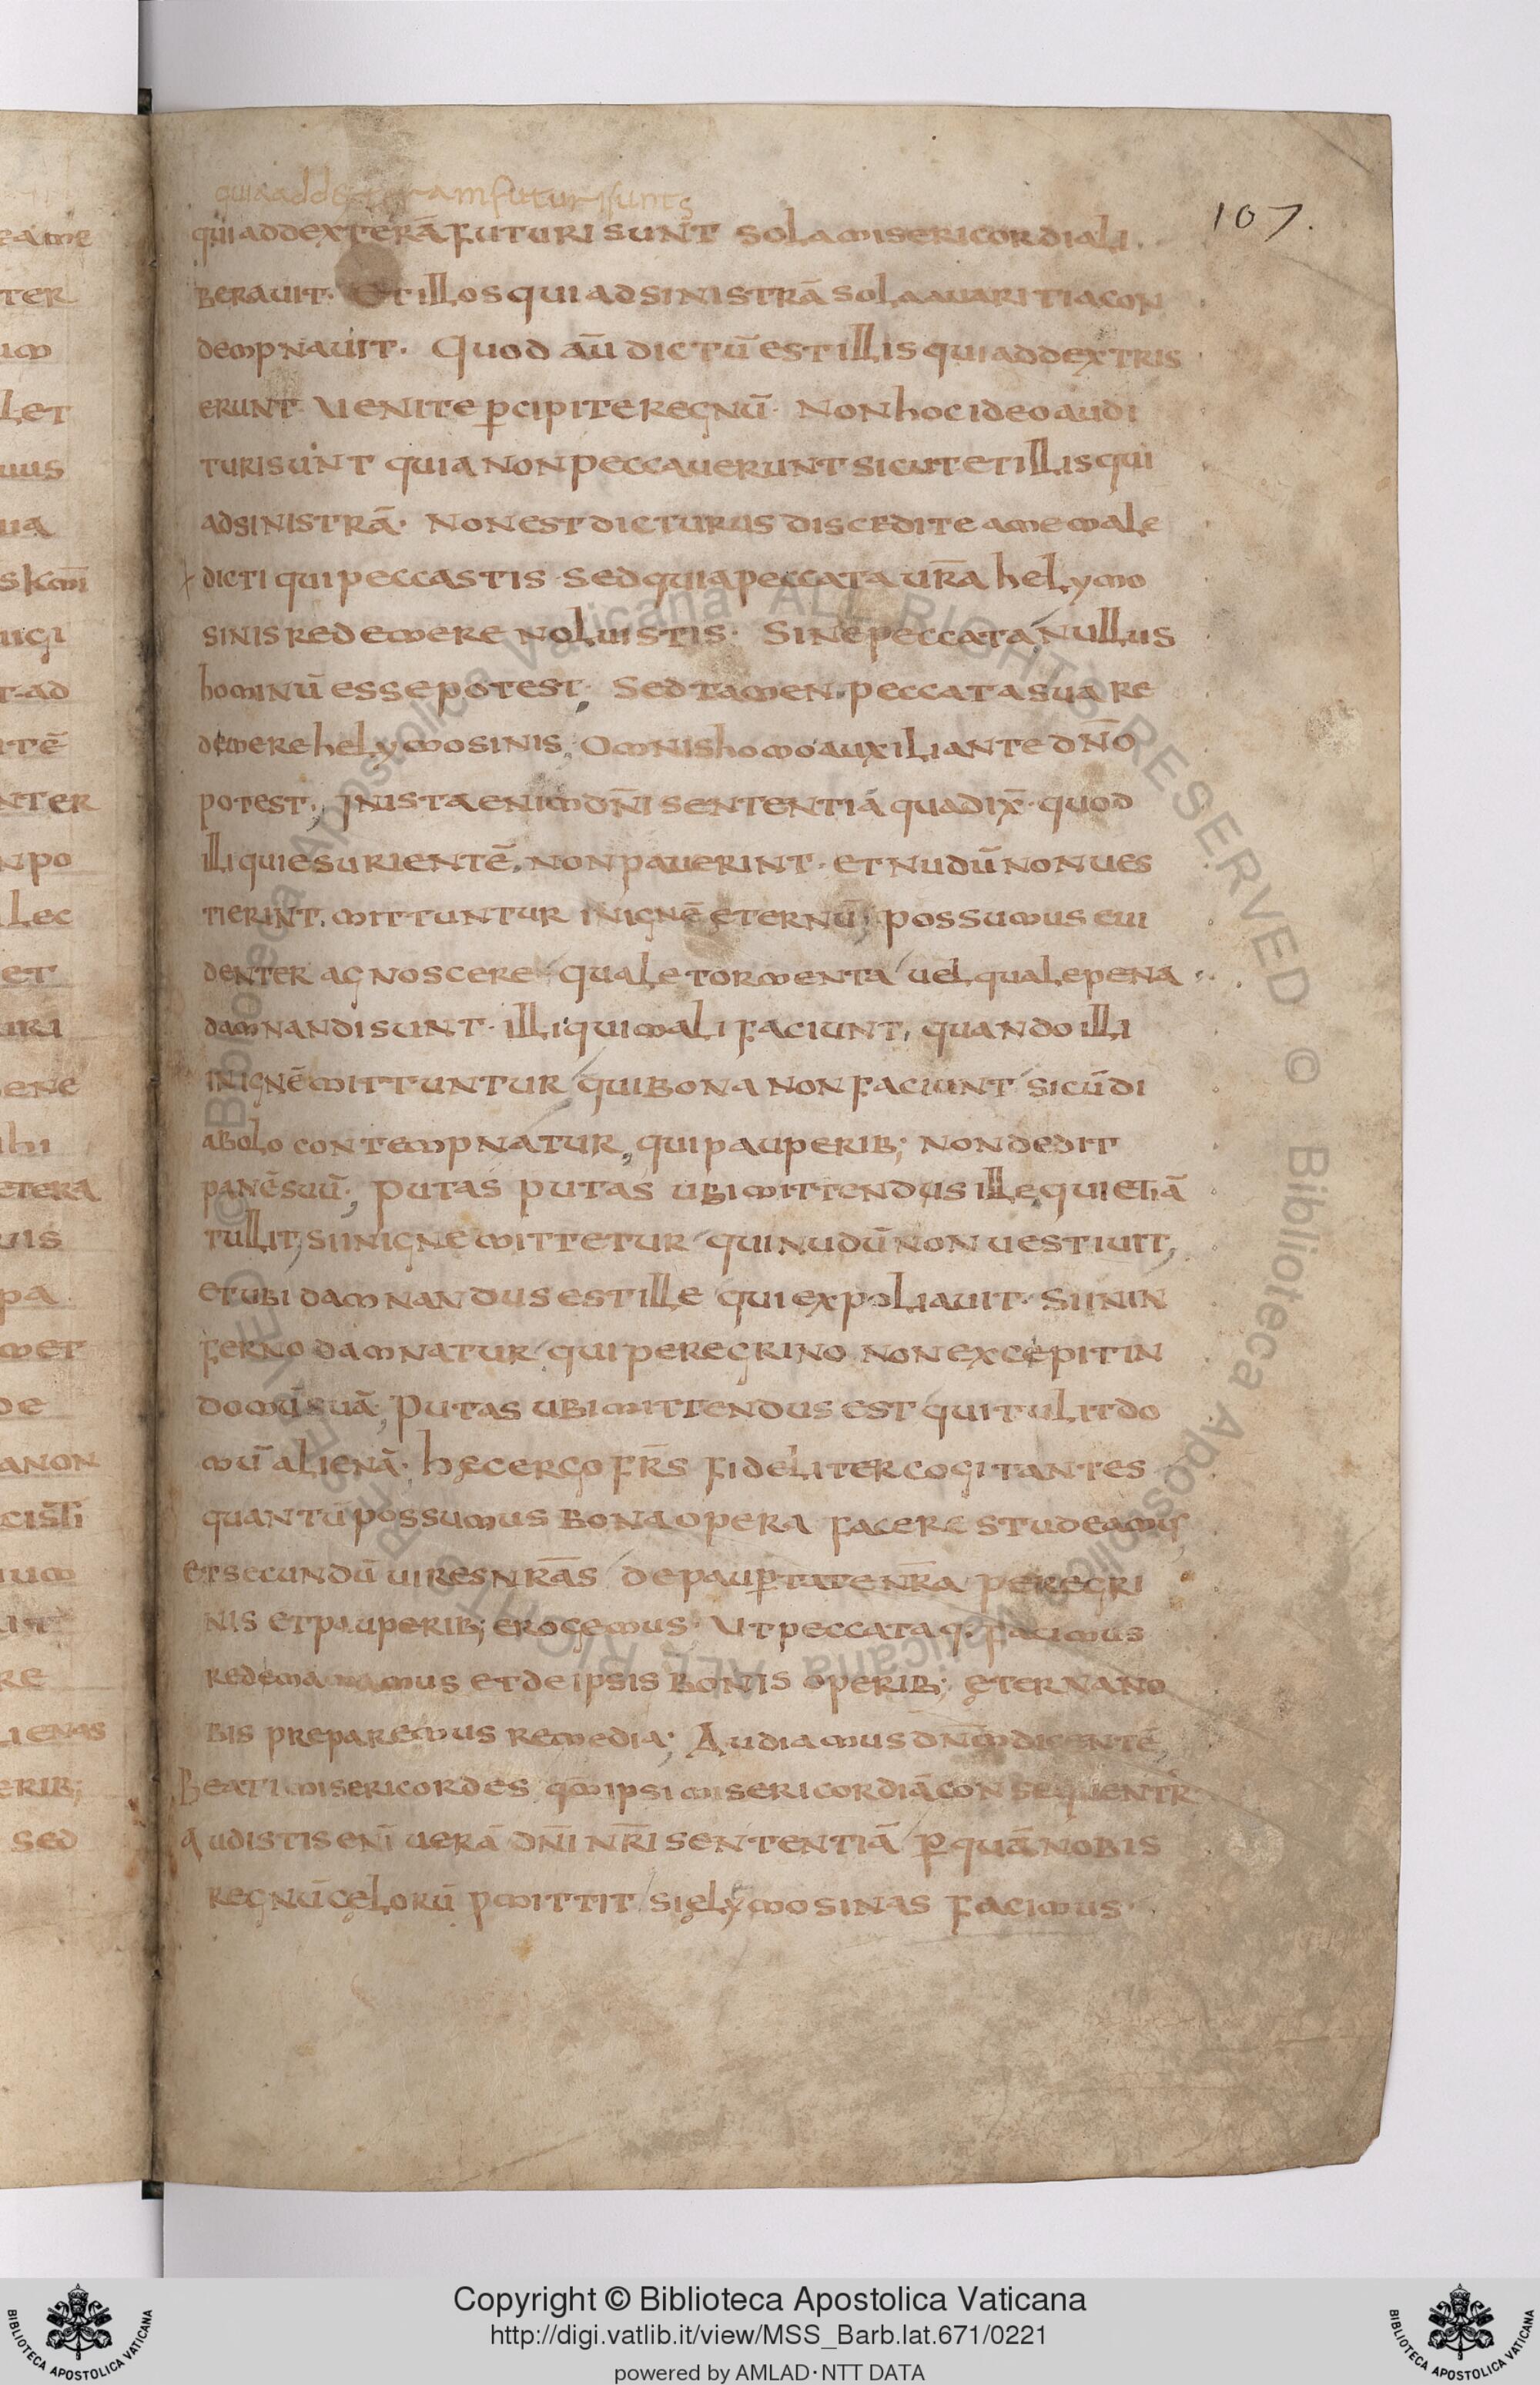 quia ad dexteram futuri sunt
107.
qui ad dexterā futuri sunt sola misericordia li
berauit. Et illos qui ad sinistrā sola auaritia con
dempnauit. Quod aū dictū est illis qui ad dextris
erunt. Uenite pcipite regnū. Non hoc ideo audi
turi sunt quia non peccauerunt sicut et illis qui
ad sinistrā. Non est dicturus discedite a me male
dicti qui peccastis. sed quia peccata ur̄a helymo
sinis redemere noluistis. Sine peccata nullus
hominū esse potest. Sed tamen peccata sua re
demere helymosinis, Omnis homo auxiliante dn̄o
potest; In ista enim dn̄i sententiā qua dix̄. quod
illi qui esurientē non pauerint. et nudū non ues
tierint. mittuntur in ignē ęternū; possumus eui
denter agnoscere quale tormenta uel quale pena
damnandi sunt. illi qui mali faciunt, quando illi
in ignē mittuntur qui bona non faciunt si cū di
abolo contempnatur, qui pauperib; non dedit
panē suū; Putas putas ubi mittendus ille qui etiā
tullit; si in igne mittetur qui nudū non uestiuit,
et ubi damnandus est ille qui expoliauit. Si in in
ferno damnatur qui peregrino non excepit in
domū suā; Putas ubi mittendus est qui tulit do
mū alienā. hęc ergo fr̄s fideliter cogitantes
quantū possumus bona opera facere studeamus
et secundū uires nr̄as de paupertate nr̄a peregri
nis et pauperib; erogemus. Ut peccata q. facimus
redemamamus et de ipsis bonis operib; ęterna no
bis preparemus remedia; Audiamus dn̄m dicentē,
Beati misericordes qm̄ ipsi misericordiā consequentr
Audistis eni uerā dn̄i nr̄i sententiā p quā nobis
regnū cęlorū pmittit si ęlymosinas facimus.
Copyright © Biblioteca Apostolica Vaticana
http://digi.vatlib.it/view/MSS_Barb.lat.671/0221
powered by AMLAD·NTT DATA